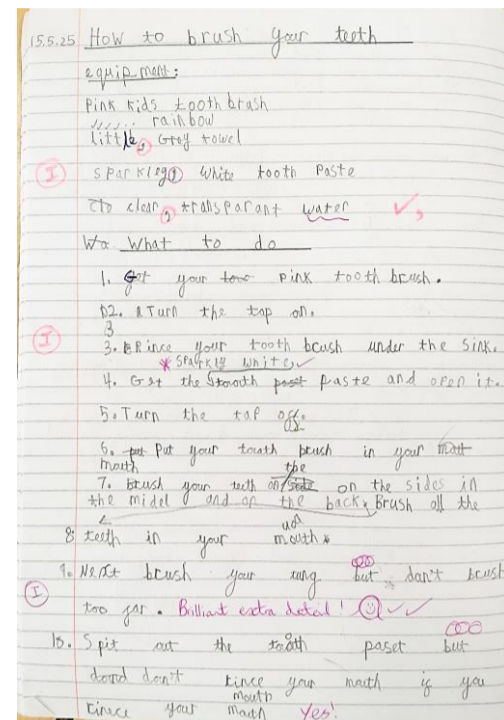 15.5.25 How to brush your teeth
equipment:
Pink kids toothbrash
rainbow
little, Grey towel
I sparkleg, white tooth Paste
clear, transparant water
What to do
1. Get your pink tooth brush.
2. Turn the tap on.
3
I 3. Rince your tooth brush under the sink.
* sparkly white
4. Get the tooth paste and open it.
5. Turn the tap off.
6. Put your touth brush in your
mouth the
7. brush your teeth on the sides in
the midel and on the back Brush all the
8. teeth in your mouth
9. Next brush your tung but don't brush
I too far. Brilliant extra detail!
10. Spit out the tooth paset but
don't rince your mouth if you
mouth
rince your Yes!